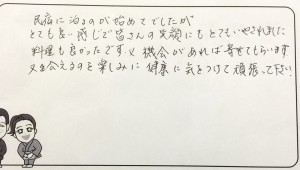 民宿に泊るのが始めてでしたが
とても良い感じで皆さんの笑顔にもとてもいやされました
料理も良かったです又機会があれば寄せてもらいます
又会えるのを楽しみに健康に気をつけて頑張って下さい!